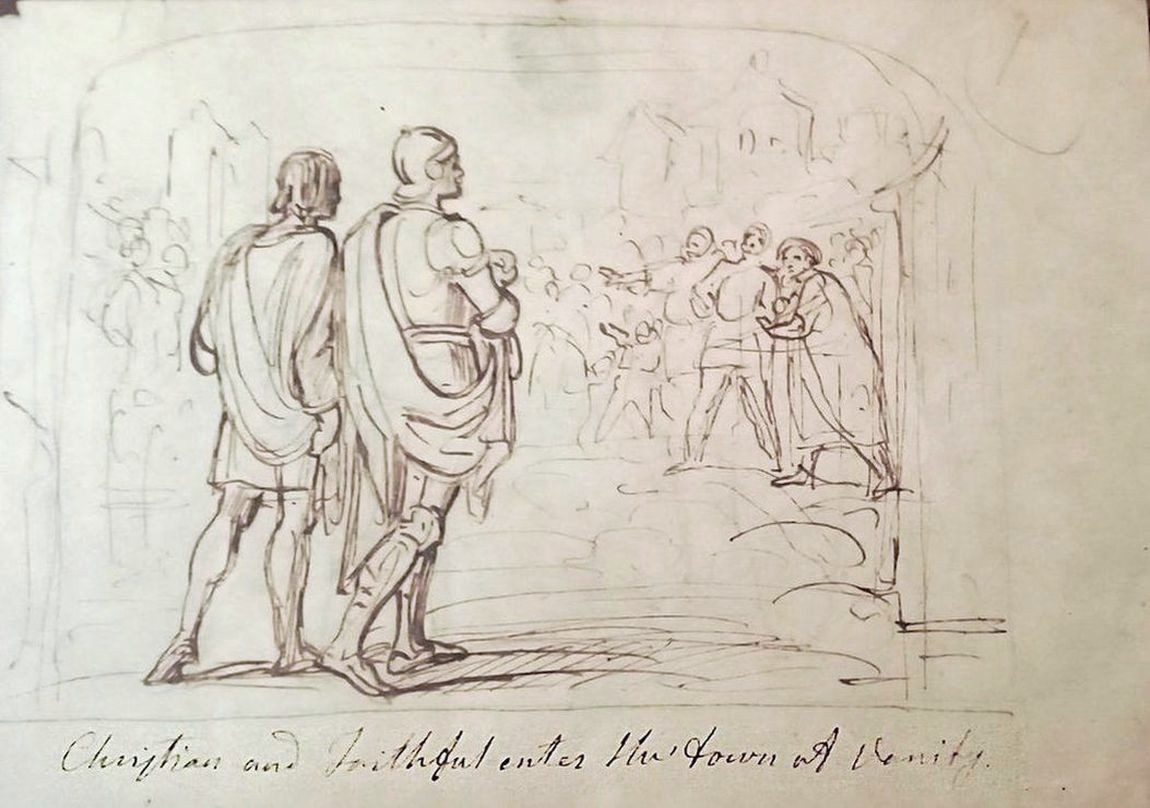 Christian and Faithful enter the town of Vanity.